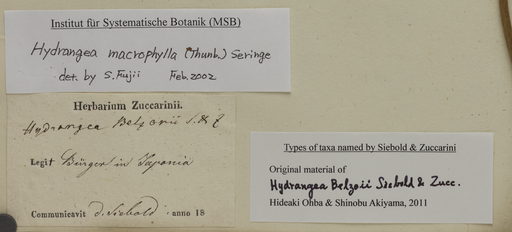 Institut für Systematische Botanik (MSB)
Hydrangea macrophylla (Thunb.) Seringe
det. by S. Fujii Feb. 2002
Herbarium Zuccarinii.
Hydrangea Belzonii S. & Z
Legit Bürger in Japonia
Communicavit d. Siebold anno 18
Types of taxa named by Siebold & Zuccarini
Original material of
Hydrangea Belzoii Siebold & Zucc.
Hideaki Ohba & Shinobu Akiyama, 2011